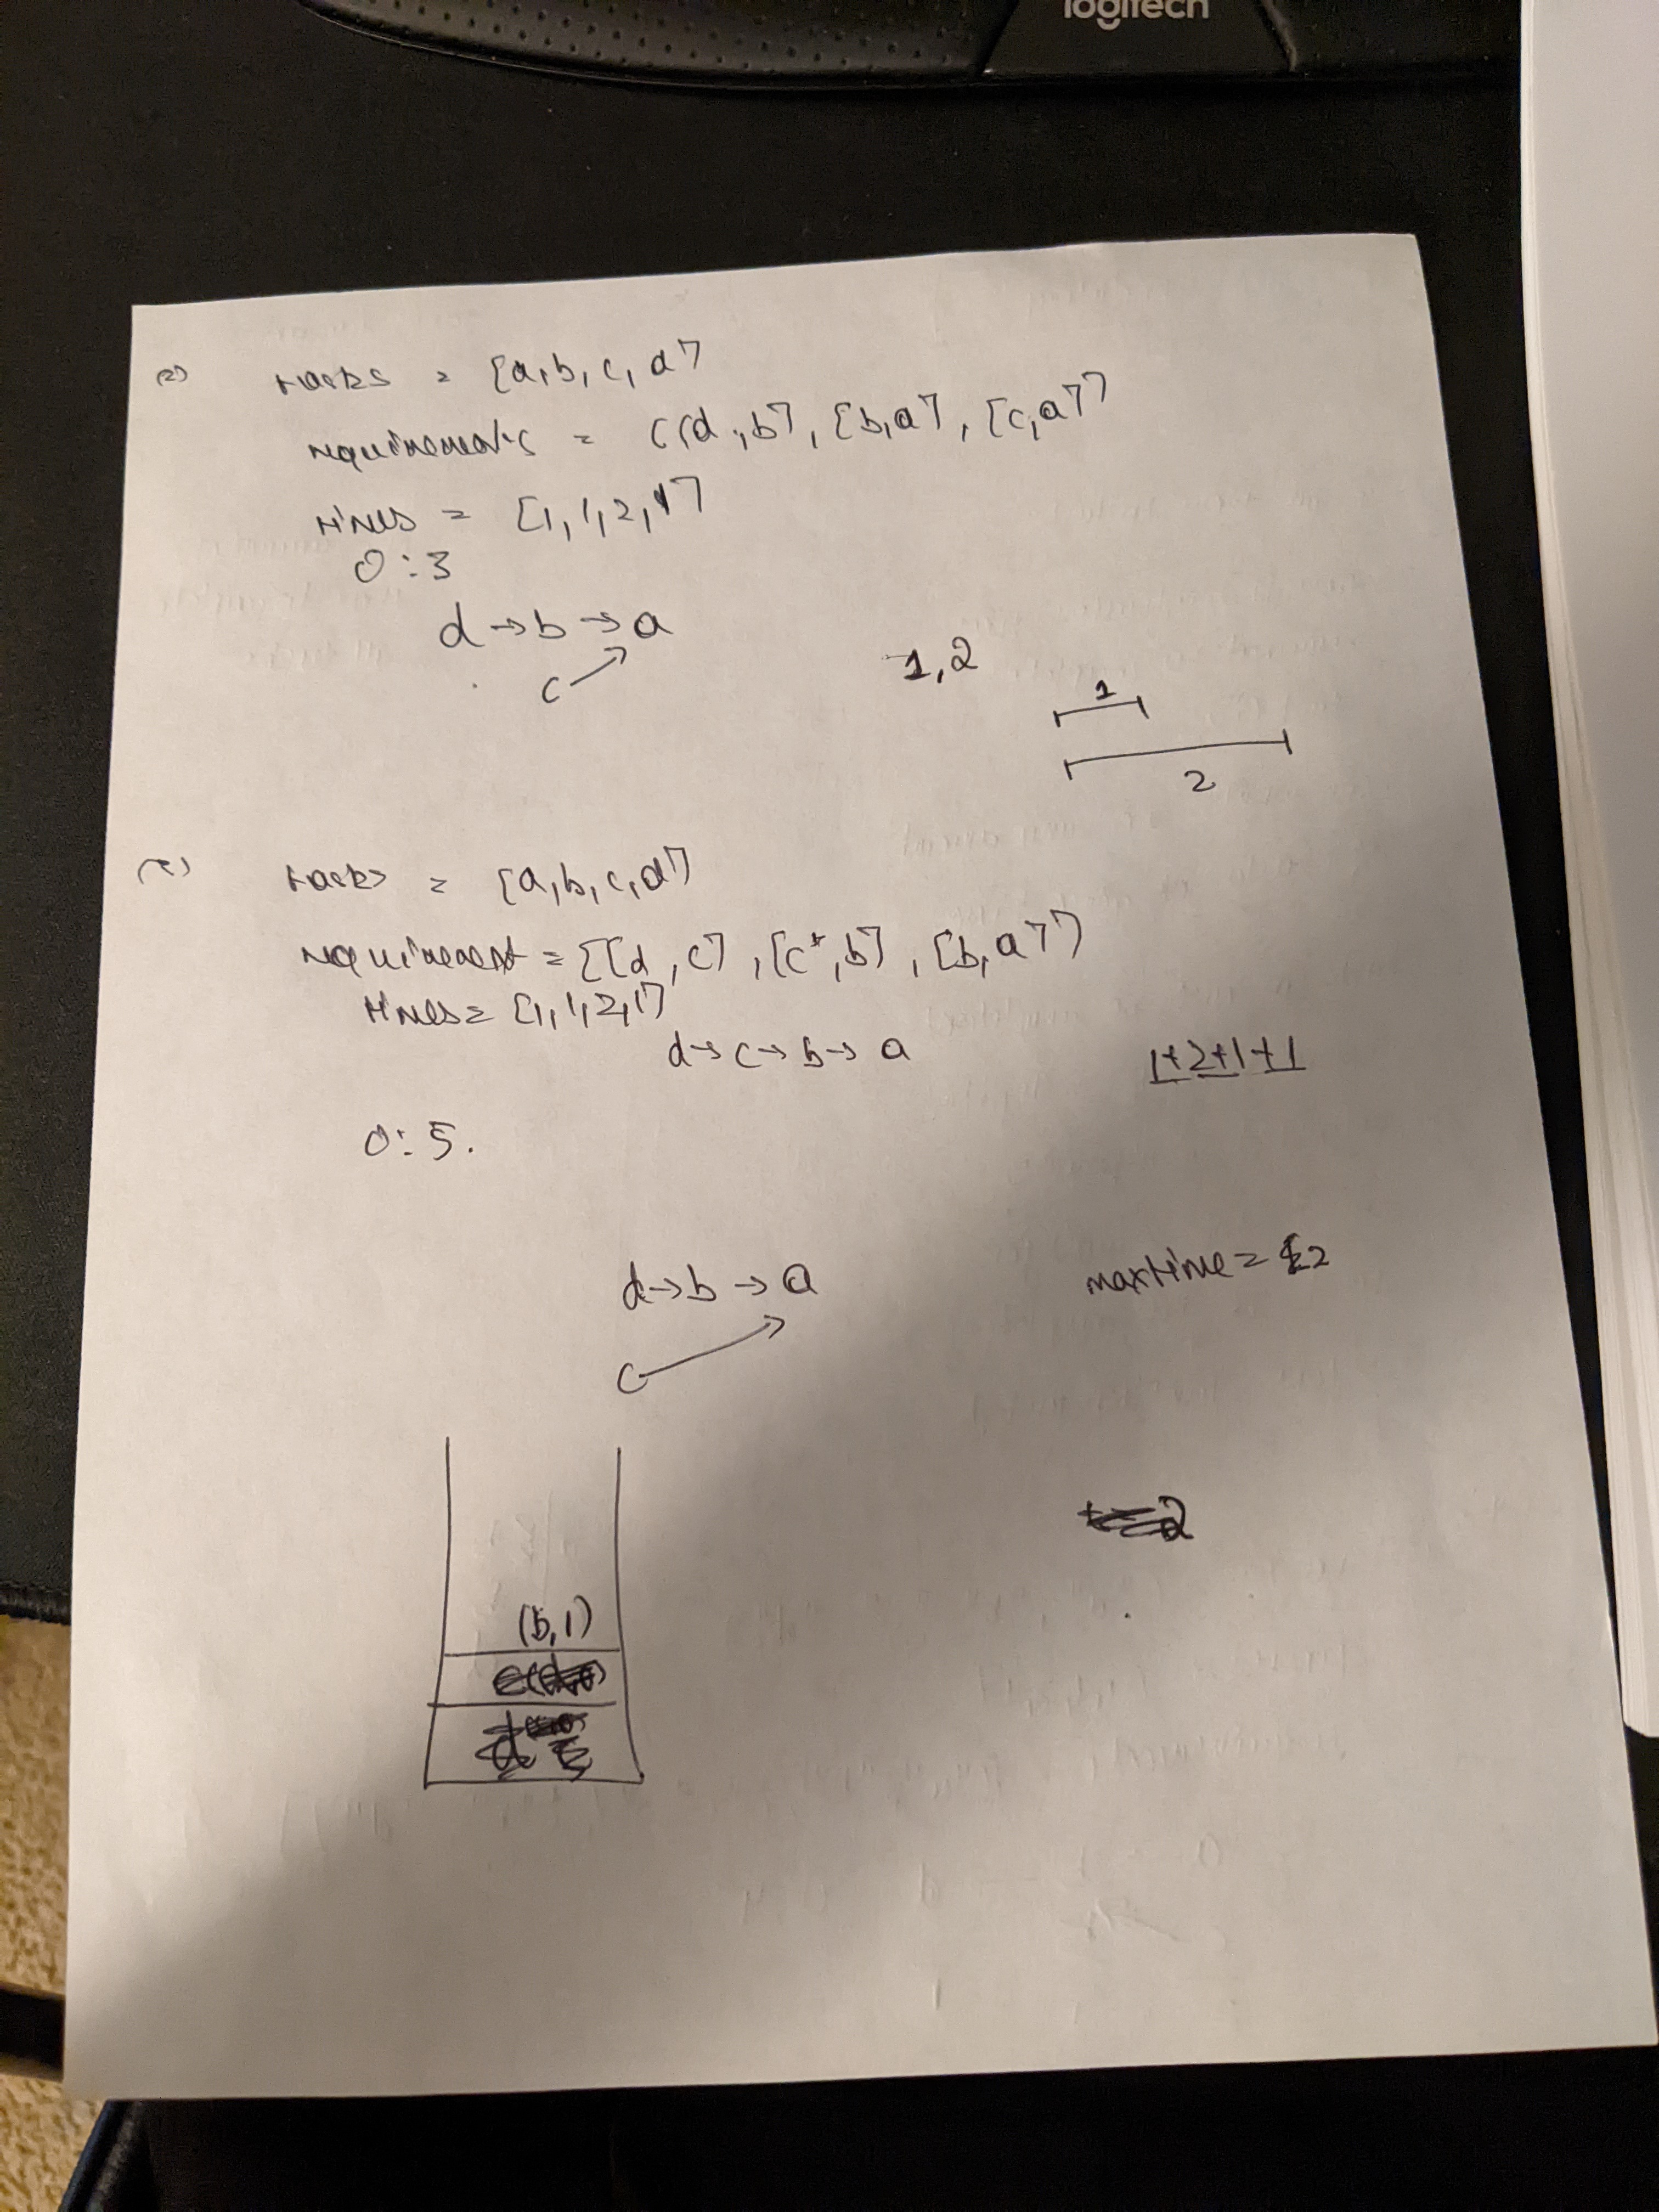 logitech
(2) tasks = [a, b, c, d]
requirements = [[d, b], [b, a], [c, a]]
times = [1, 1, 2, 1]
O : 3
d → b → a
c
1, 2
1
2
tasks = [a, b, c, d]
requirement = [[d, c], [c, b], [b, a]]
times = [1, 1, 2, 1]
d → c → b → a
1+2+1+1
O : 5.
d → b → a
maxtime = 2
c
2
(b, 1)